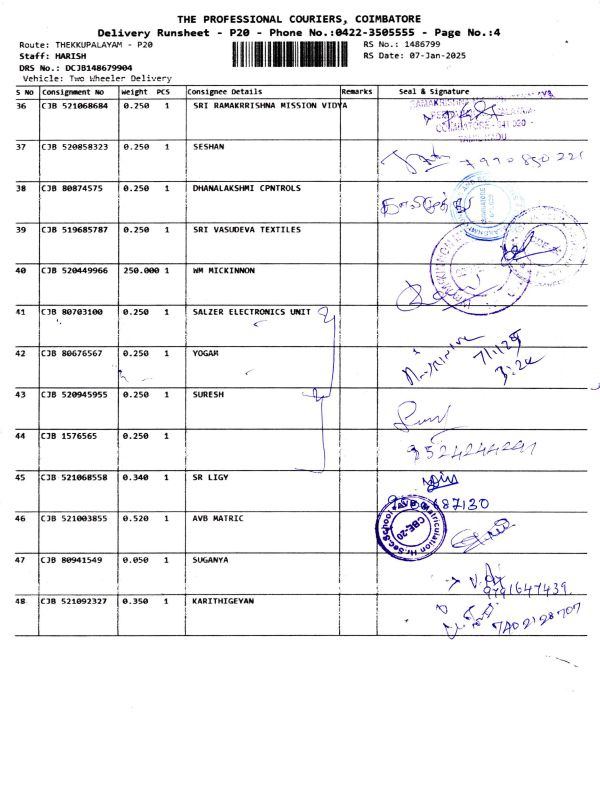 THE PROFESSIONAL COURIERS, COIMBATORE
Delivery Runsheet - P20 - Phone No.:0422-3505555 - Page No.:4
Route: THEKKUPALAYAM - P20 RS No.: 1486799
Staff: HARISH RS Date: 07-Jan-2025
DRS No.: DCJB148679904
Vehicle: Two Wheeler Delivery
S No Consignment No Weight PCS Consignee Details Remarks Seal & Signature
36 CJB 521068684 0.250 1 SRI RAMAKRRISHNA MISSION VIDYA
COIMBATORE - 641 020
TAMILNADU
37 CJB 520858323 0.250 1 SESHAN 7990850221
38 CJB 80874575 0.250 1 DHANALAKSHMI CPNTROLS
39 CJB 519685787 0.250 1 SRI VASUDEVA TEXTILES
40 CJB 520449966 250.000 1 WM MICKINNON
41 CJB 80703100 0.250 1 SALZER ELECTRONICS UNIT
42 CJB 80676567 0.250 1 YOGAM 7/1/25
3:20
43 CJB 520945955 0.250 1 SURESH
44 CJB 1576565 0.250 1 9524244291
45 CJB 521068558 0.340 1 SR LIGY
87130
46 CJB 521003855 0.520 1 AVB MATRIC
AVB Matriculation Hr.Sec.School
CBE-20
47 CJB 80941549 0.050 1 SUGANYA
9791647439
48 CJB 521092327 0.350 1 KARITHIGEYAN
7402128707